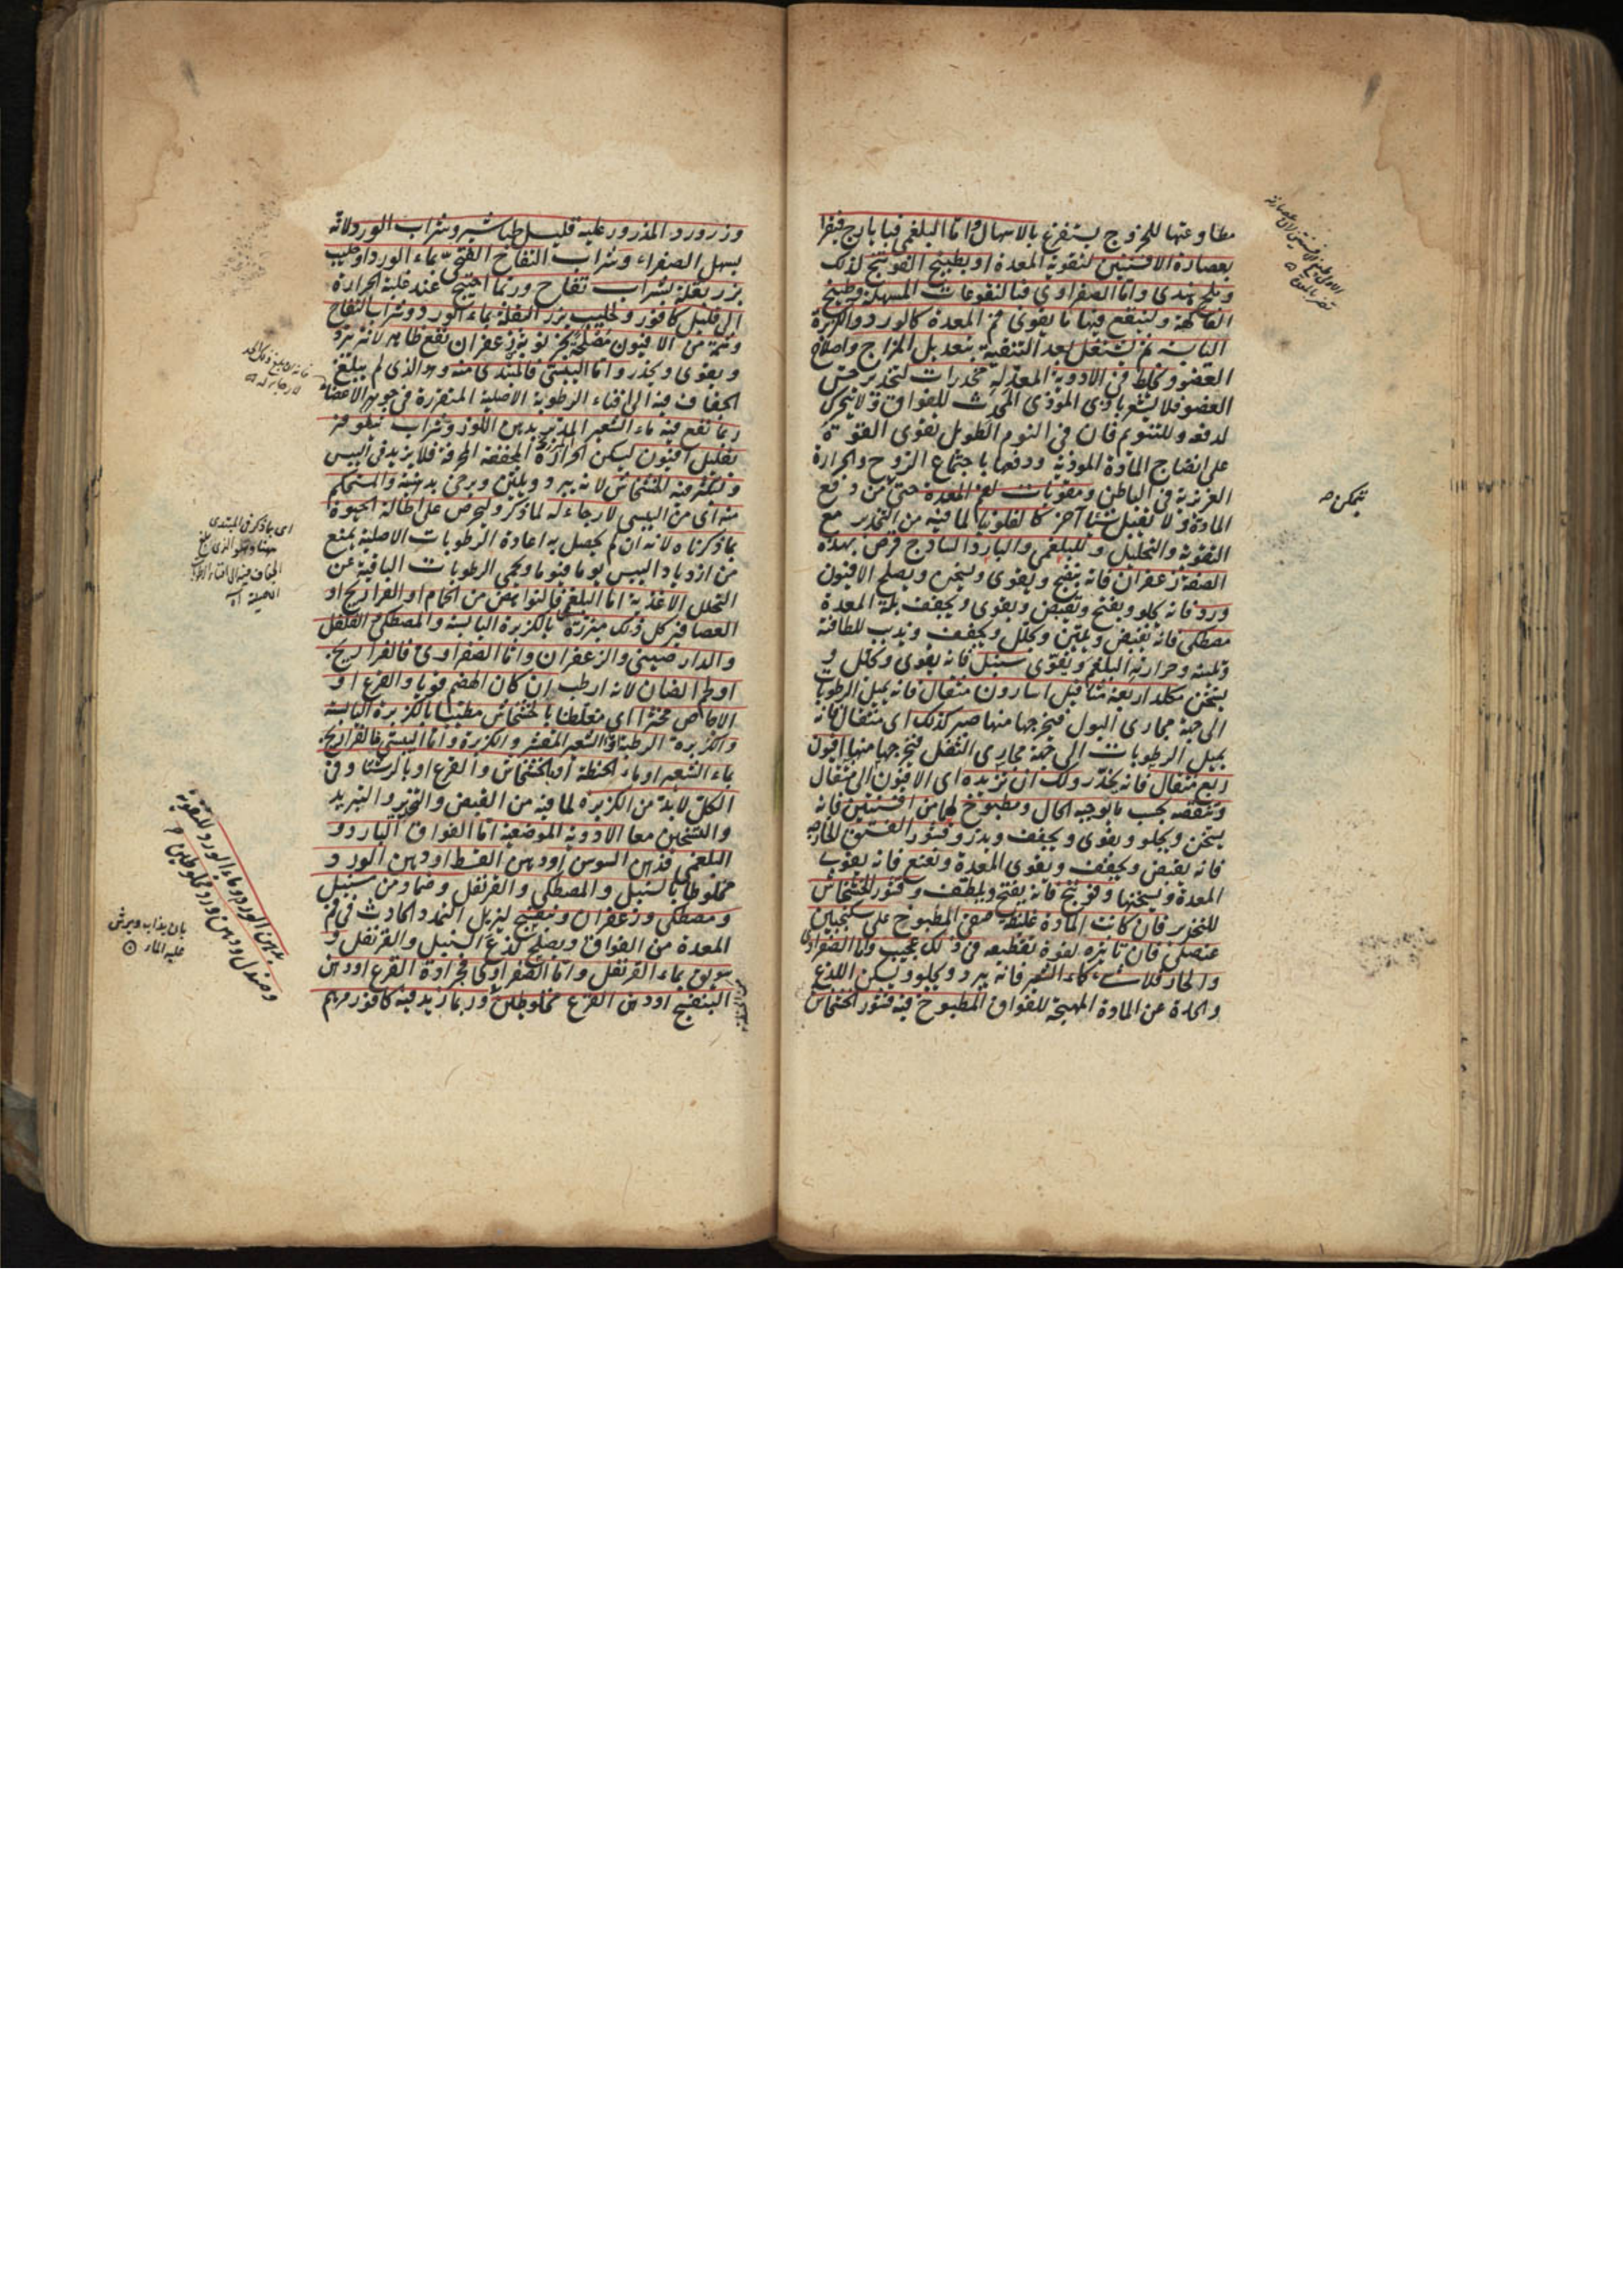 مطاوعتها للخروج يستفرغ بالاسهال واما البلغمي فبايارج فيقرا
بعصارة الافسنتين لتقوية المعدة او بطبيخ الفوتنج لذلك
وملح هندي واما الصفراوي فبالنقوعات المسهلة وطبيخ
الفاكهة ولينقع فيها ما يقوى فم المعدة كالورد والكزبرة
اليابسة ثم يشتغل بعد التنقية بتعديل المزاج واصلاح
العضو ويخلط في الادوية المعدلة مخدرات لتخدير حس
العضو فلا يشعر باذى الموذي المحدث للفواق ولا يتحرك
لدفعه وللتنويم فان في النوم الطويل يقوى القوة
على انضاج المادة الموذية ودفعها باجتماع الروح والحرارة
الغريزية في الباطن ومقويات لفم المعدة حتى من دفع
المادة ولا تقبل شيئا آخر كالفلونيا لما فيه من التخدير مع
التقوية والتحليل وللبلغمي والبارد الساذج قرص بهذه
الصفة زعفران فانه ينضج ويقوى ويسخن ويصلح الافيون
ورد فانه يجلو ويفتح ويقبض ويقوى ويجفف بلة المعدة
مصطكى فانه يقبض ويلين ويحلل ويجفف ويذيب للطافته
وتلينه وحرارته البلغم ويقوى سنبل فانه يقوى ويحلل و
يسخن من كلد اربعة مثاقيل اسارون مثقال فانه يميل الرطوبات
الى جهة مجاري البول فيخرجها منها صبر كذلك اى مثقال فانه
يميل الرطوبات الى جهة مجاري الثفل فيخرجها منها افيون
ربع مثقال فانه يخدر ولك ان تزيده اى الافيون الى مثقال
وتنقصه بحسب ما يوجبه الحال ومطبوخ لها من افسنتين فانه
يسخن ويجلو ويقوى ويجفف وبذر وقشور الفستق الخارجه
فانه يقبض ويجفف ويقوى المعدة ونعنع فانه يقوى
المعدة ويسخنها وفوتنج فانه يفتح ويلطف وقشور الخشخاش
للتخدير فان كانت المادة غليظة صفي المطبوخ على سكنجبين
عنصلي فان تاثيره لقوة تقطيعه في ذلك عجيب واما الصفراوي
والحار فلا شئ كماء الشعير فانه يبرد ويجلو ويسكن اللذع
والحدة عن المادة المهيجة للفواق المطبوخ فيه قشور الخشخاش
يتمكن صح
وزرورد المذرور عليه قليل طباشير وشراب الورد لانه
يسهل الصفراء وشراب التفاح الفتحي بماء الورد او حليب
بزر بقلة بشراب تفاح وربما احتيج عند غلبة الحرارة
الى قليل كافور وحليب بزر البقلة بماء الورد وشراب التفاح
وشمة من الافيون مصلحة بجزئه بزر زعفران نفع ظاهر لانه يبرد
ويقوى ويخدر واما اليبسي فالمبتدى منه وهو الذي لم يبلغ
الجفاف فيه الى افناء الرطوبة الاصلية المتقررة في جوهر الاعضاء
ربما نفع فيه ماء الشعير المدبر بدهن اللوز وشراب نيلوفر
بقليل افيون ليسكن الحرارة المجففة المحرقة فلا يزيد في اليبس
وليكثر فيه الخشخاش لانه يبرد ويلين ويرخى بدهنيته والمستحكم
منه اى من اليبسي لا رجاء له لما ذكر وليحرص على اطالة الحيوة
بما ذكرناه لانه ان لم يحصل به اعادة الرطوبات الاصلية يمنع
من ازدياد اليبس يوما فيوما ويحمي الرطوبات الباقية عن
التحلل الاغذية اما البلغمي فالنواهض من الحمام او الفراريج او
العصافير كل ذلك مبزرة بالكزبرة اليابسة والمصطكى الفلفل
والدار صيني والزعفران واما الصفراوي فالفراريج
او لحم الضان لانه ارطب ان كان الهضم قويا والقرع او
الاجاص مخثرا اى مغلظا بالخشخاش مطيبا بالكزبرة اليابسة
والكزبرة الرطبة او الشعير المقشر والكزبرة واما اليبسي فالفراريج
بماء الشعير او ماء الحنطة او بالخشخاش والقرع او بالرشتا وفي
الكل لا بد من الكزبرة لما فيه من القبض والتخدير والتبريد
والتسخين معا الادوية الموضعية اما الفواق البارد و
البلغمي فدهن السوس او دهن القسط او دهن الورد و
مخلوطا بالسنبل والمصطكى والقرنفل وضماد من سنبل
ومصطكى وزعفران وميعة ليزيل التمدد الحادث في فم
المعدة من الفواق ويصلح لذع السنبل والقرنفل و
سويق بماء القرنفل واما الصفراوي فجرادة القرع او دهن
البنفسج او دهن القرع مخلوطين وربما زيد فيه كافور مرهم
اى ما ذكر في المبتدى
بدهن الورد وماء الورد للتقوية
وصندل ودهن ورد مخلوطين م
بان يذاب ويرش
عليه الماء